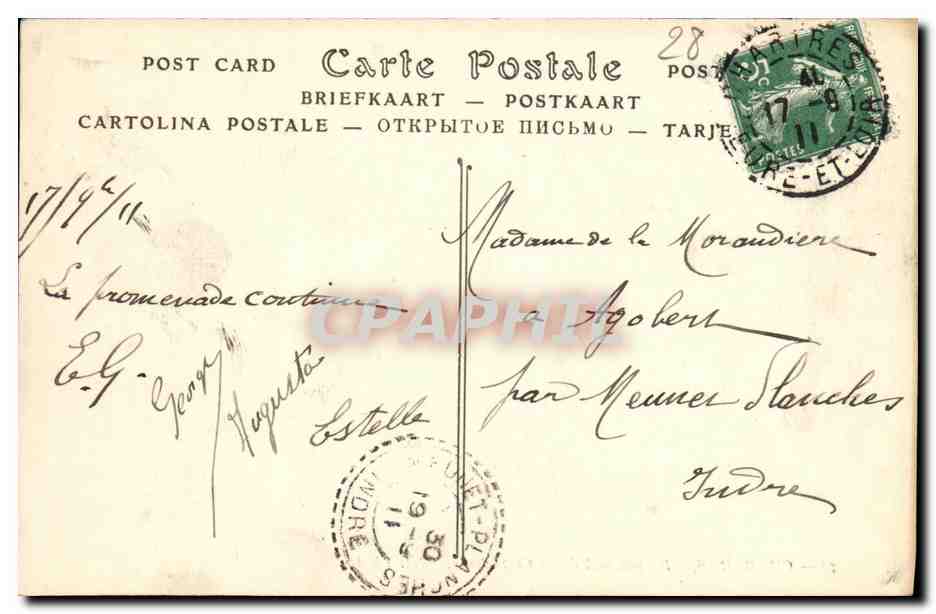 28
POST CARD Carte Postale POS
BRIEFKAART — POSTKAART
CARTOLINA POSTALE — ОТКРЫТОЕ ПИСЬМО — TARJE
CHARTRES
17 -9
11
EURE-ET-LOIR
POSTES
17/9bre/11
La promenade continue
E.G.
Georges
Augusta
Estelle
Madame de la Morandiere
a Agobert
par Meunet Planches
Indre
CPAPHIL
MEUNET-PLANCHES
30
19 -9
11
INDRE